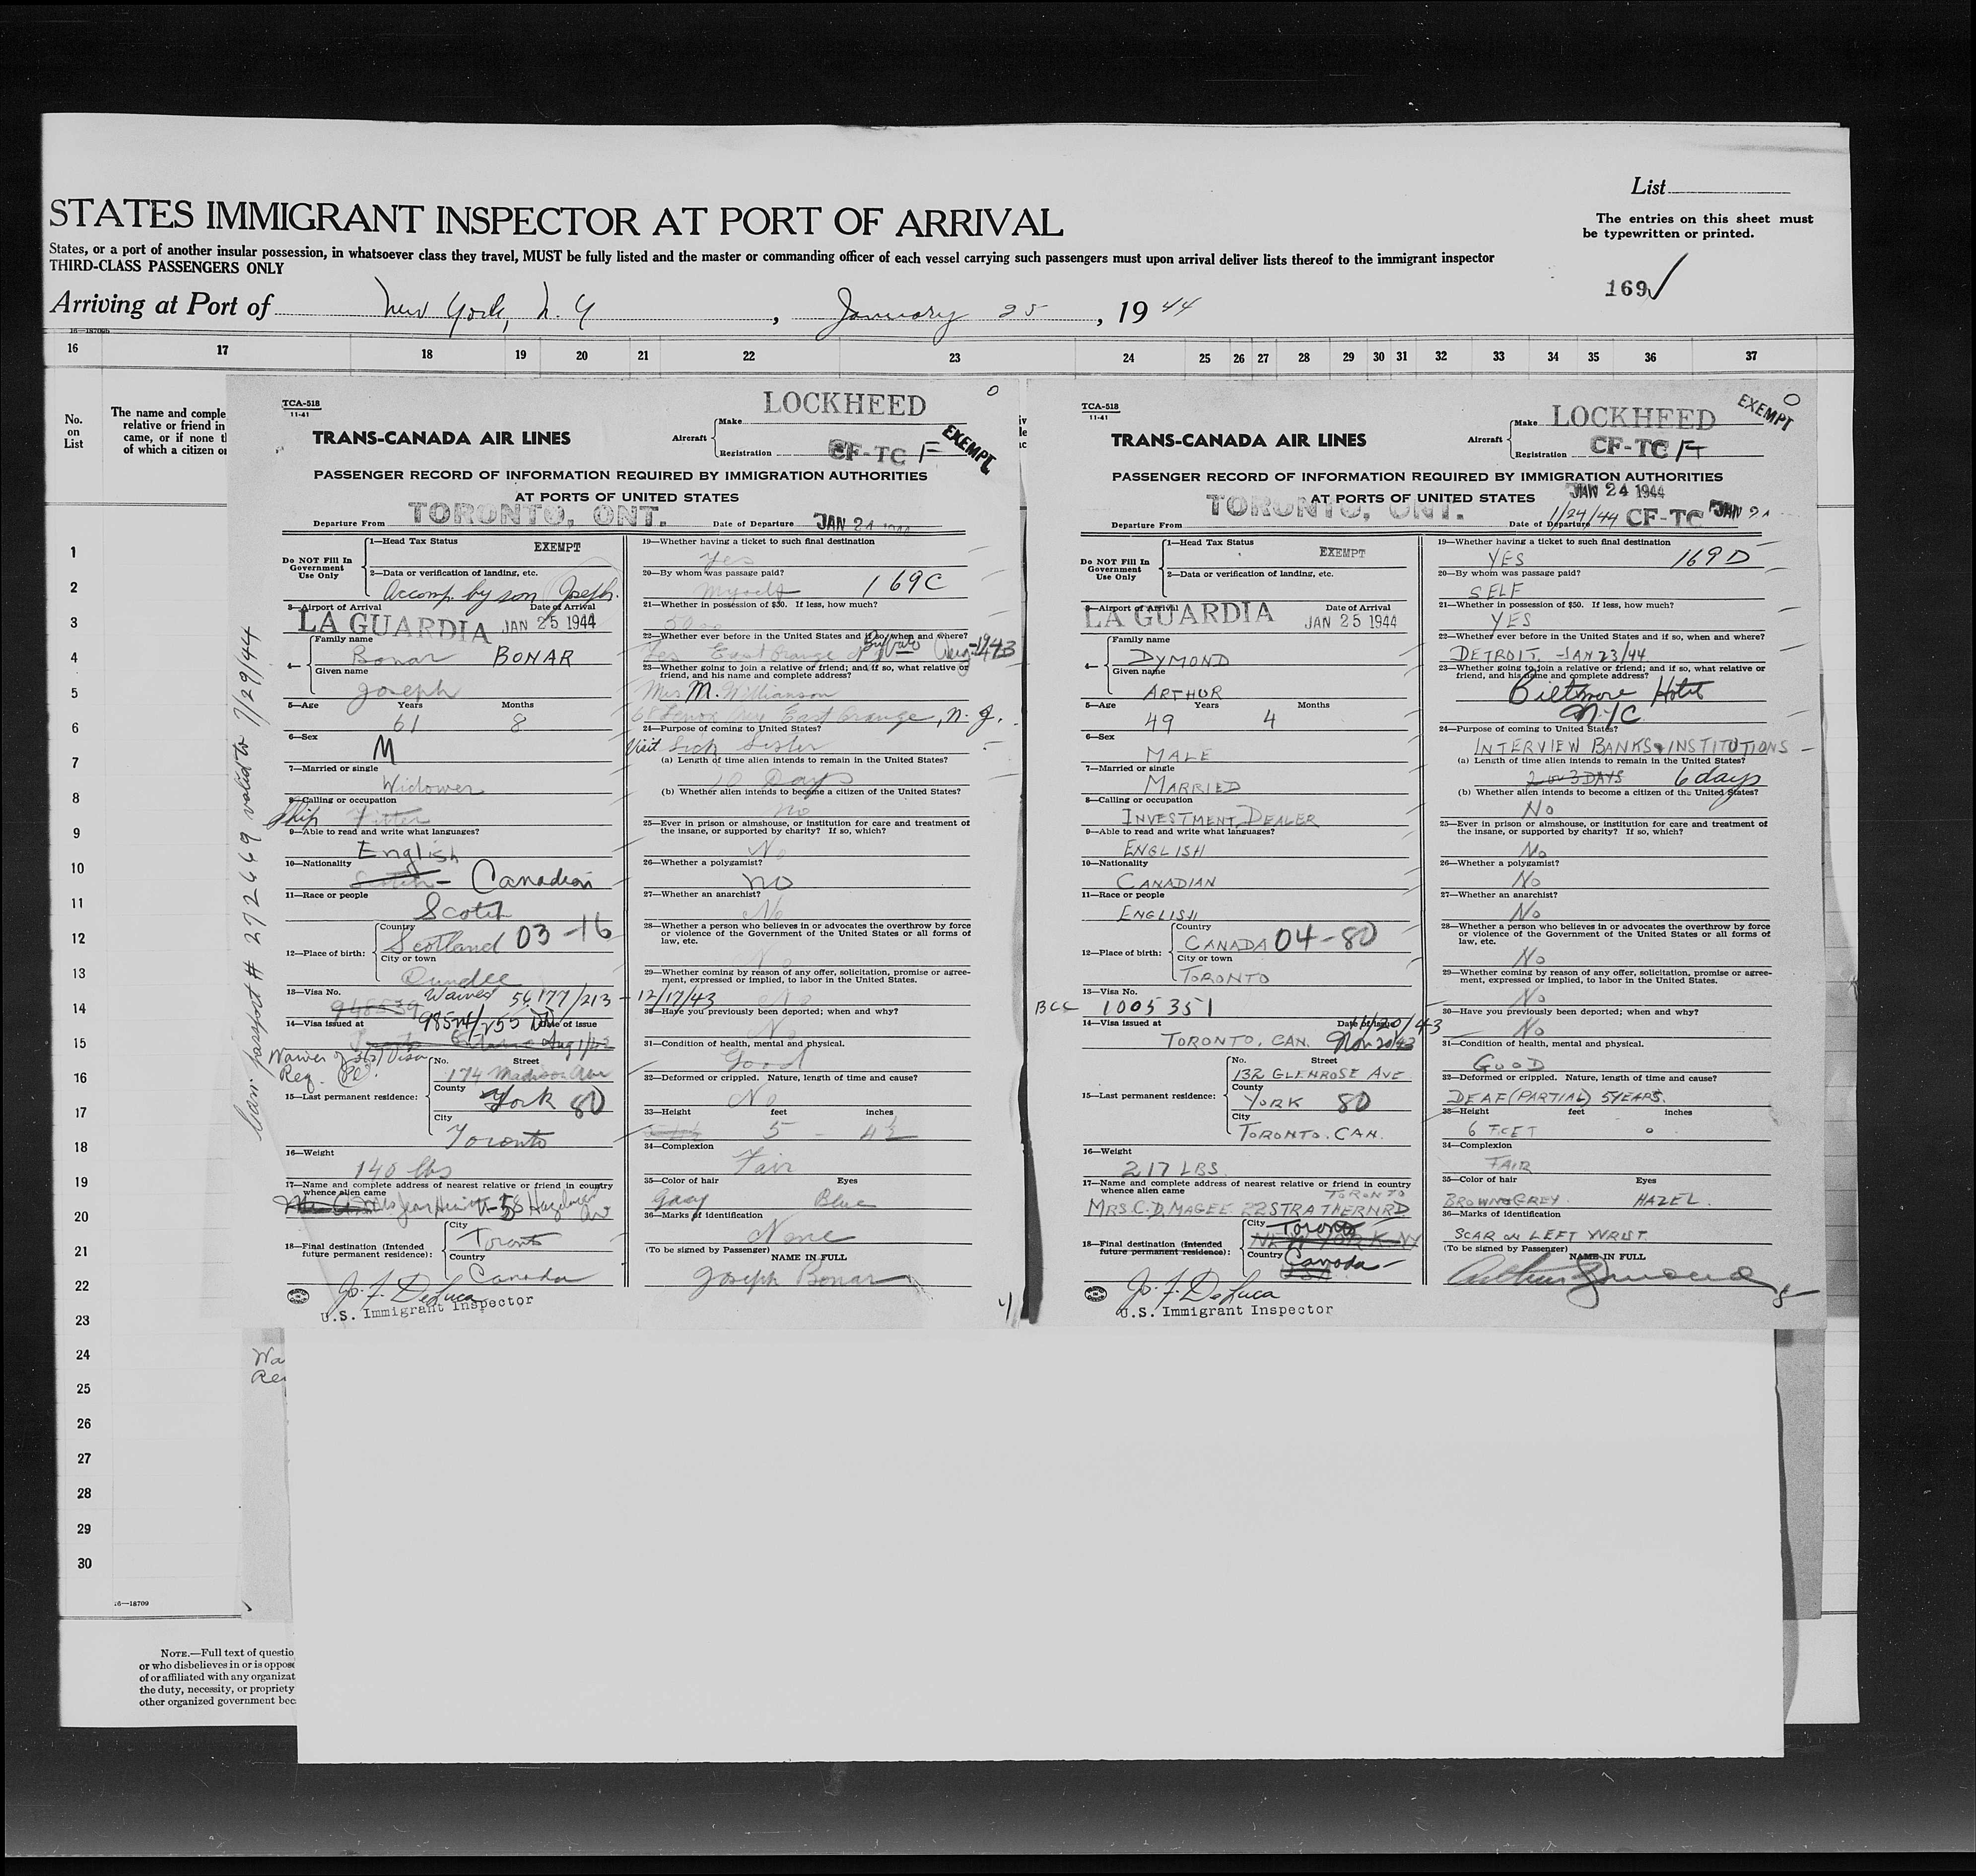 List
STATES IMMIGRANT INSPECTOR AT PORT OF ARRIVAL
The entries on this sheet must
be typewritten or printed.
States, or a port of another insular possession, in whatsoever class they travel, MUST be fully listed and the master or commanding officer of each vessel carrying such passengers must upon arrival deliver lists thereof to the immigrant inspector
THIRD-CLASS PASSENGERS ONLY
169
Arriving at Port of New York, N.Y , January 25 , 19 44
16 17 18 19 20 21 22 23 24 25 26 27 28 29 30 31 32 33 34 35 36 37
No.
on
List
The name and comple
relative or friend in
came, or if none t
of which a citizen o
1
2
3
4
5
6
7
8
9
10
11
12
13
14
15
16
17
18
19
20
21
22
23
24
25
26
27
28
29
30
16—18709
NOTE.—Full text of questio
or who disbelieves in or is oppose
of or affiliated with any organizat
the duty, necessity, or propriety
other organized government bec
Wa
Re
Can. passport # 272669 valid to 7/29/44
TCA-518
11-41
LOCKHEED
TRANS-CANADA AIR LINES
Aircraft
Make
Registration CF-TC F
EXEMPT
PASSENGER RECORD OF INFORMATION REQUIRED BY IMMIGRATION AUTHORITIES
AT PORTS OF UNITED STATES
Departure From TORONTO, ONT.
Date of Departure JAN 24 1944
Do NOT Fill In
Government
Use Only
1—Head Tax Status EXEMPT
2—Data or verification of landing, etc.
Accomp. by son Joseph.
3—Airport of Arrival Date of Arrival
LA GUARDIA JAN 25 1944
4— Family name
Bonar BONAR
Given name
Joseph
5—Age Years Months
61 8
6—Sex
M
7—Married or single
Widower
8—Calling or occupation
Ship Fitter
9—Able to read and write what languages?
English
10—Nationality
Scotch - Canadian
11—Race or people
Scotch
12—Place of birth: Country
Scotland 03-16
City or town
Dundee
13—Visa No.
948539 Waiver 56177/213 - 12/17/43
14—Visa issued at Date of issue
98524/255
Aug 1/42
Waiver of Visa
Req.
15—Last permanent residence: No. Street
174 Madison Ave
County
York 80
City
Toronto
16—Weight
140 lbs
17—Name and complete address of nearest relative or friend in country
whence alien came
18—Final destination (Intended
future permanent residence):
City
Toronto
Country
Canada
Jo. F. DeLuca
U.S. Immigrant Inspector
19—Whether having a ticket to such final destination
Yes
20—By whom was passage paid?
Myself 169C
21—Whether in possession of $50. If less, how much?
22—Whether ever before in the United States and if so, when and where?
Yes East Orange Buffalo Aug-1943
23—Whether going to join a relative or friend; and if so, what relative or
friend, and his name and complete address?
Mrs M. Williamson
68 Lenox Ave East Orange, N.J.
24—Purpose of coming to United States?
Visit Sick Sister
(a) Length of time alien intends to remain in the United States?
10 Days
(b) Whether alien intends to become a citizen of the United States?
No
25—Ever in prison or almshouse, or institution for care and treatment of
the insane, or supported by charity? If so, which?
No
26—Whether a polygamist?
no
27—Whether an anarchist?
No
28—Whether a person who believes in or advocates the overthrow by force
or violence of the Government of the United States or all forms of
law, etc.
No
29—Whether coming by reason of any offer, solicitation, promise or agree-
ment, expressed or implied, to labor in the United States.
No
30—Have you previously been deported; when and why?
No
31—Condition of health, mental and physical.
Good
32—Deformed or crippled. Nature, length of time and cause?
No
33—Height feet inches
5 - 4½
34—Complexion
Fair
35—Color of hair Eyes
Gray Blue
36—Marks of identification
None
(To be signed by Passenger) NAME IN FULL
Joseph Bonar
TCA-518
11-41
TRANS-CANADA AIR LINES
Aircraft
Make LOCKHEED
Registration CF-TC F
EXEMPT
PASSENGER RECORD OF INFORMATION REQUIRED BY IMMIGRATION AUTHORITIES
AT PORTS OF UNITED STATES JAN 24 1944
Departure From TORONTO, ONT.
Date of Departure 1/24/44 CF-TC JAN 24
Do NOT Fill In
Government
Use Only
1—Head Tax Status EXEMPT
2—Data or verification of landing, etc.
3—Airport of Arrival Date of Arrival
LA GUARDIA JAN 25 1944
4— Family name
DYMOND
Given name
ARTHUR
5—Age Years Months
49 4
6—Sex
MALE
7—Married or single
MARRIED
8—Calling or occupation
INVESTMENT DEALER
9—Able to read and write what languages?
ENGLISH
10—Nationality
CANADIAN
11—Race or people
ENGLISH
12—Place of birth: Country
CANADA 04-80
City or town
TORONTO
13—Visa No.
BCC 1005351
14—Visa issued at Date of issue 11/20/43
TORONTO, CAN. Nov 20/43
15—Last permanent residence: No. Street
132 GLENROSE AVE
County
YORK 80
City
TORONTO. CAN.
16—Weight
217 LBS.
17—Name and complete address of nearest relative or friend in country
whence alien came TORONTO
MRS. C.D. MAGEE 22 STRATHERN RD
18—Final destination (Intended
future permanent residence):
City Toronto
NEW YORK NY
Country Canada
USA
Jo. F. DeLuca
U.S. Immigrant Inspector
19—Whether having a ticket to such final destination
YES 169D
20—By whom was passage paid?
SELF
21—Whether in possession of $50. If less, how much?
YES
22—Whether ever before in the United States and if so, when and where?
DETROIT - JAN 23/44
23—Whether going to join a relative or friend; and if so, what relative or
friend, and his name and complete address?
Biltmore Hotel
NYC
24—Purpose of coming to United States?
INTERVIEW BANKS & INSTITUTIONS
(a) Length of time alien intends to remain in the United States?
2 or 3 DAYS 6 days
(b) Whether alien intends to become a citizen of the United States?
No
25—Ever in prison or almshouse, or institution for care and treatment of
the insane, or supported by charity? If so, which?
No
26—Whether a polygamist?
No
27—Whether an anarchist?
No
28—Whether a person who believes in or advocates the overthrow by force
or violence of the Government of the United States or all forms of
law, etc.
No
29—Whether coming by reason of any offer, solicitation, promise or agree-
ment, expressed or implied, to labor in the United States.
No
30—Have you previously been deported; when and why?
No
31—Condition of health, mental and physical.
GOOD
32—Deformed or crippled. Nature, length of time and cause?
DEAF (PARTIAL) 5 YEARS.
33—Height feet inches
6 FEET 0
34—Complexion
FAIR
35—Color of hair Eyes
BROWN & GREY HAZEL.
36—Marks of identification
SCAR ON LEFT WRIST.
(To be signed by Passenger) NAME IN FULL
Arthur Dymond